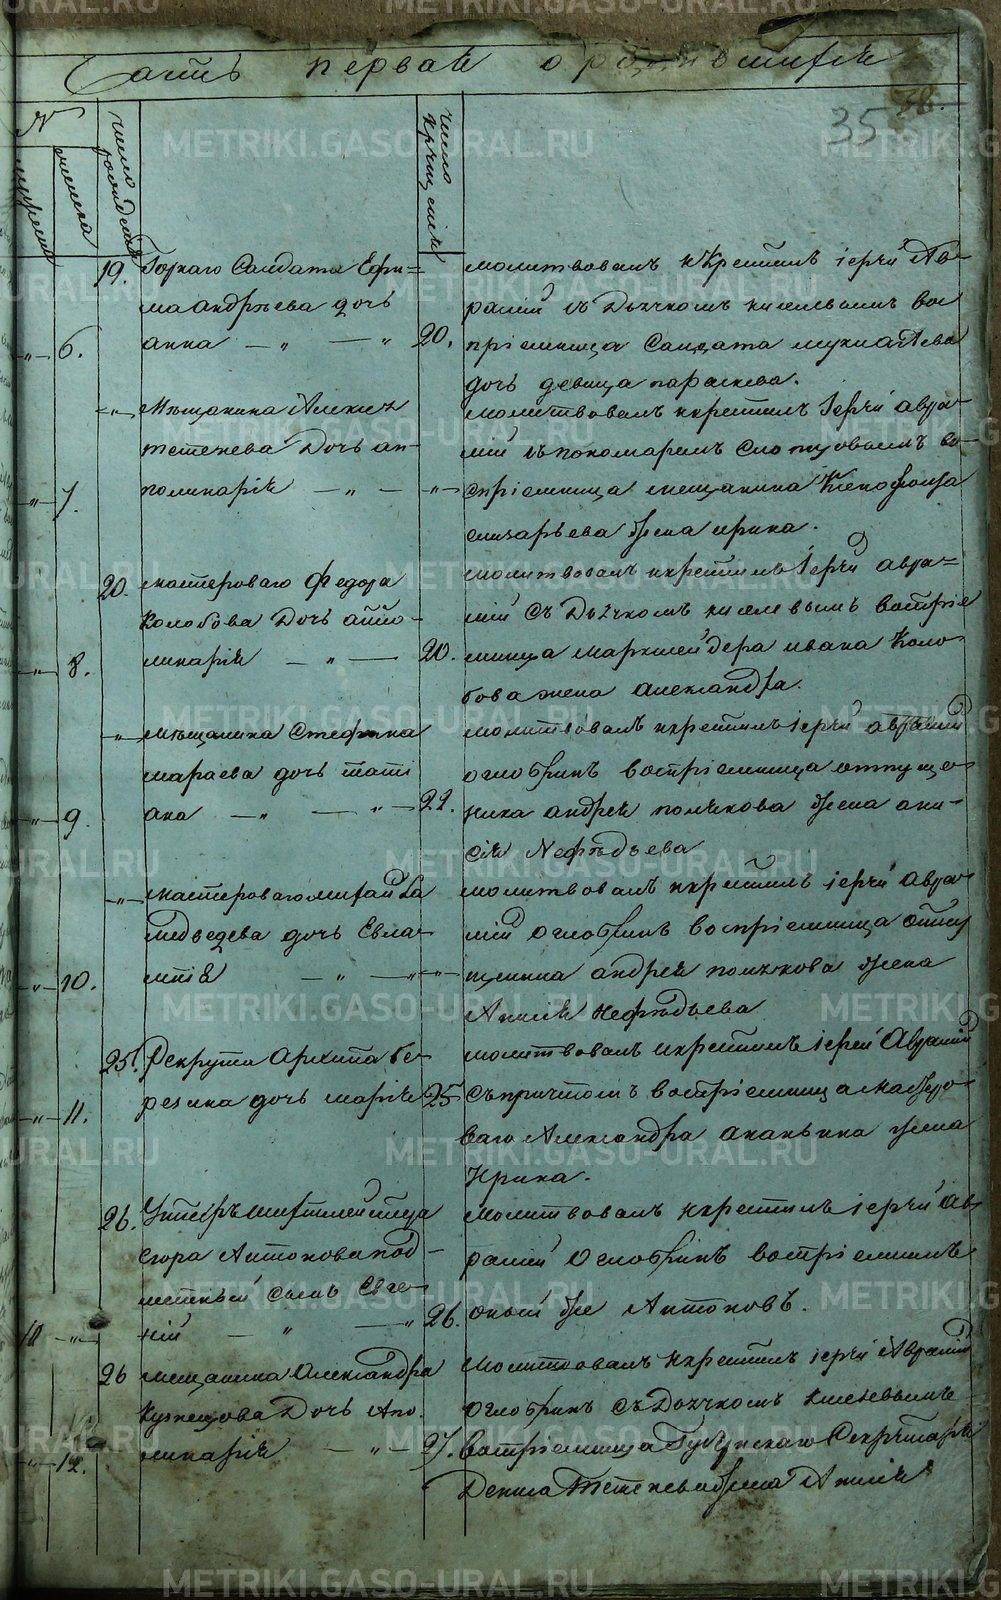 METRIKI.GASO-URAL.RU
Часть первая о родившихся
35
38.
№
мужеска
женска
число рожденія
число крещенія
19. Горнаго Солдата Ефи=
ма Андрѣева дочь
„ 6. анна — „ — „ 20.
молитвовалъ и крестилъ іерей Ав-
рамій съ Дьячкомъ киселевымъ вос
пріемница Солдата
дочь девица параскева.
„ Мѣщанина Алексѣя
тетенева Дочь ап-
„ 7. полинарія — „ — „
молитвовалъ и крестилъ Іерей авра-
мій съ пономаремъ во-
спріемница мещанина Ксенофонта
елизарьева жена ирина.
20. мастероваго федора
Колобова Дочь аппо-
„ 8. линарія — „ — 20.
молитвовалъ и крестилъ Іерей авра=
мій съ Дьячкомъ киселевымъ воспріе
мница маркшейдера ивана Коло-
бова жена александра.
„ мѣщанина Стефана
мараева дочь таті
„ 9. ана — „ — „ 22.
молитвовалъ и крестилъ іерей аврамій
оглоблинъ воспріемница отпуще-
ника андрея полякова жена ани-
сія Нефедьева
„ мастероваго михайла
медведева дочь Евла-
„ 10. мпія — „ — „
молитвовалъ и крестилъ іерей авра-
мій оглоблинъ воспріемница отпу
щеника андрея полякова жена
Анисія нефедьева
25. Рекрута Архипа бе-
„ 11. резина дочь марія 25
молитвовалъ и крестилъ іерей Аврамій
съ причтомъ воспріемница
ваго Александра ананьина жена
Ирина.
26. Унтеръ шихтмейстера
егора Антонова
сынъ Евге-
11 „ ній — „ — „ 26.
молитвовалъ и крестилъ іерей Ав
рамій Оглоблинъ воспріемникъ
оной же Антоновъ.
26 мещанина Александра
Кузнецова Дочь Апо.
„ 12. линарія — „ — 27.
молитвовалъ и крестилъ іерей Аврамій
оглоблинъ съ Дьячкомъ киселевымъ
воспріемница Губернскаго Секретаря
Дениса Тетенева жена Анисія